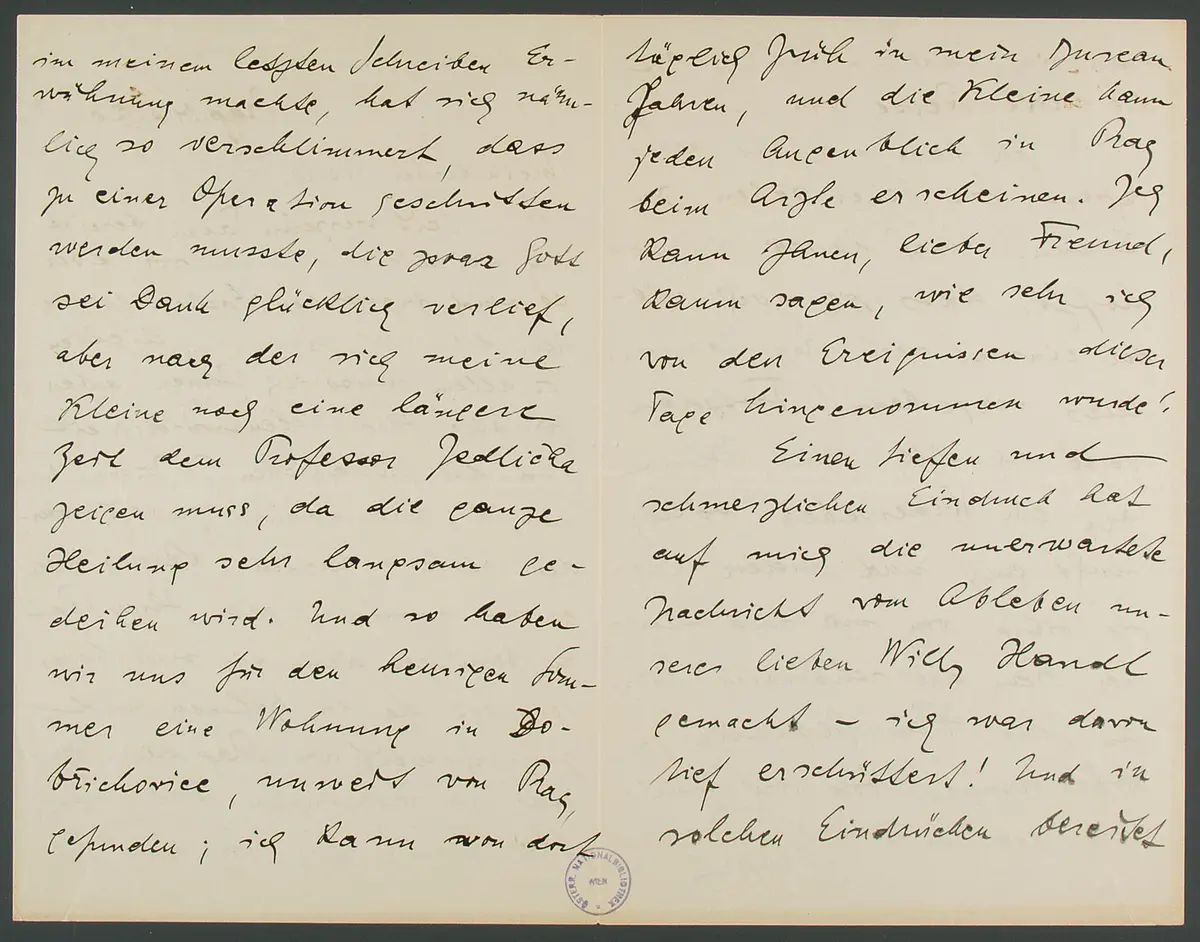 in meinem letzten Schreiben Er-
wähnung machte, hat sich näm-
lich so verschlimmert, dass
zu einer Operation geschritten
werden musste, die zwar Gott
sei Dank glücklich verlief,
aber nach der sich meine
Kleine noch eine längere
Zeit dem Professor Jedlička
zeigen muss, da die ganze
Heilung sehr langsam ge-
deihen wird. Und so haben
wir uns für den heurigen Som-
mer eine Wohnung in Do-
břichovice, unweit von Prag,
gefunden; ich kann von dort
täglich früh in mein Bureau
fahren, und die Kleine kann
jeden Augenblick in Prag
beim Arzte erscheinen. Ich
kann Ihnen, lieber Freund,
kaum sagen, wie sehr ich
von den Ereignissen dieser
Tage hingenommen wurde!
Einen tiefen und
schmerzlichen Eindruck hat
auf mich die unerwartete
Nachricht vom Ableben un-
seres lieben Willy Handl
gemacht – ich war davon
tief erschüttert! Und in
solchen Eindrücken bereitet
ÖSTERR. NATIONALBIBLIOTHEK
WIEN